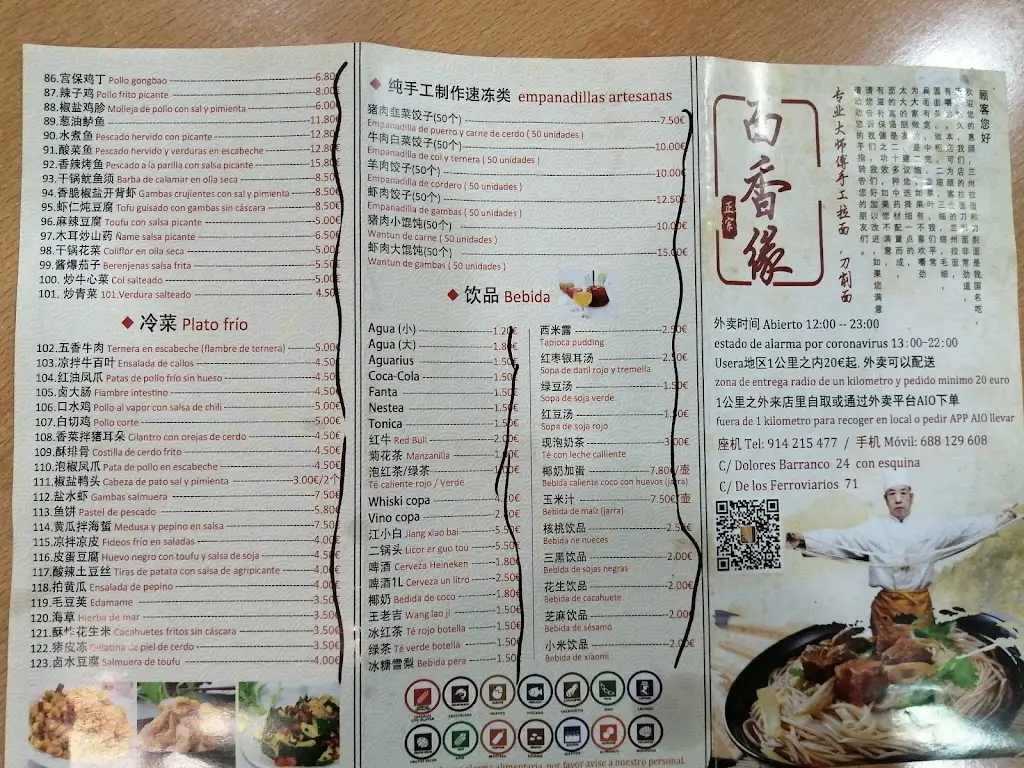 86.宫保鸡丁 Pollo gongbao 6.80
87.辣子鸡 Pollo frito picante 8.00€
88.椒盐鸡胗 Molleja de pollo con sal y pimienta 6.00€
89.葱油鲈鱼 11.80€
90.水煮鱼 Pescado hervido con picante 12.80€
91.酸菜鱼 Pescado hervido y verduras en escabeche 12.80€
92.香辣烤鱼 Pescado a la parilla con salsa picante 15.80€
93.干锅鱿鱼须 Barba de calamar en olla seca 8.50€
94.香脆椒盐开背虾 Gambas crujientes con sal y pimienta 8.50€
95.虾仁炖豆腐 Tofu guisado con gambas sin cáscara 8.50€
96.麻辣豆腐 Toufu con salsa picante 5.00€
97.木耳炒山药 Ñame salsa picante 6.50€
98.干锅花菜 Coliflor en olla seca 5.00€
99.酱爆茄子 Berenjenas salsa frita 5.50€
100. 炒牛心菜 Col salteado 5.00€
101. 炒青菜 101.Verdura salteado 4.50€
冷菜 Plato frío
102.五香牛肉 Ternera en escabeche (flambre de ternera) 5.00€
103.凉拌牛百叶 Ensalada de callos 4.50€
104.红油凤爪 Patas de pollo frío sin hueso 4.50€
105.卤大肠 Fiambre intestino 4.50€
106.口水鸡 Pollo al vapor con salsa de chili 5.00€
107.白切鸡 Pollo corte 5.00€
108.香菜拌猪耳朵 Cilantro con orejas de cerdo 4.50€
109.酥排骨 Costilla de cerdo frito 4.50€
110.泡椒凤爪 Pata de pollo en escabeche 4.50€
111.椒盐鸭头 Cabeza de pato sal y pimienta 3.00€/2个
112.盐水虾 Gambas salmuera 7.50€
113.鱼饼 Pastel de pescado 5.80€
114.黄瓜拌海蜇 Medusa y pepino en salsa 7.50€
115.凉拌凉皮 Fideos frío en saladas 4.00€
116.皮蛋豆腐 Huevo negro con toufu y salsa de soja 4.50€
117.酸辣土豆丝 Tiras de patata con salsa de agripicante 4.00€
118.拍黄瓜 Ensalada de pepino 4.00€
119.毛豆荚 Edamame 3.50€
120.海草 Hierba de mar 3.50€
121.酥炸花生米 Cacahuetes fritos sin cáscara 3.50€
122.猪皮冻 Gelatina de piel de cerdo 3.50€
123.卤水豆腐 Salmuera de toufu 4.00€
纯手工制作速冻类 empanadillas artesanas
猪肉韭菜饺子(50个) 7.50€
Empanadilla de puerro y carne de cerdo ( 50 unidades )
牛肉白菜饺子(50个) 10.00€
Empanadilla de col y ternera ( 50 unidades )
羊肉饺子(50个) 10.00€
Empanadilla de cordero ( 50 unidades )
虾肉饺子(50个) 12.50€
Empanadilla de gambas ( 50 unidades )
猪肉小馄饨(50个) 10.00€
Wantun de carne ( 50 unidades )
虾肉大馄饨(50个) 15.00€
Wantun de gambas ( 50 unidades )
饮品 Bebida
Agua (小) 1.20€
Agua (大) 1.80€
Aquarius 1.50€
Coca-Cola 1.50€
Fanta 1.50€
Nestea 1.50€
Tonica 1.50€
红牛 Red Bull 2.00€
菊花茶 Manzanilla 1.00€
泡红茶/绿茶 1.00€
Té caliente rojo / Verde
Whiski copa 4.20€
Vino copa 2.80€
江小白 Jiang xiao bai 5.50€
二锅头 Licor er guo tou 5.50€
啤酒 Cerveza Heineken 1.80€
啤酒1L Cerveza un litro 2.50€
椰奶 Bedida de coco 1.80€
王老吉 Wang lao ji 1.50€
冰红茶 Té rojo botella 1.50€
绿茶 Té verde botella 1.50€
冰糖雪梨 Bebida pera 1.50€
西米露 2.50€
Tapioca pudding
红枣银耳汤 2.50€
Sopa de datil rojo y tremella
绿豆汤 1.50€
Sopa de soja verde
红豆汤 1.50€
Sopa de soja rojo
现泡奶茶 3.00€
Té con leche calliente
椰奶加蛋 7.80€/壶
Bebida caliente coco con huevos (jarra)
玉米汁 7.50€/壶
Bebida de maíz (jarra)
核桃饮品 2.50€
Bebida de nueces
三黑饮品 2.00€
Bebida de sojas negras
花生饮品 2.00€
Bebida de cacahuete
芝麻饮品 2.00€
Bebida de sésamo
小米饮品 2.00€
Bebida de xiaomi
alergia alimentaria, por favor avise a nuestro personal.
西香缘
正宗
专业大师傅手工拉面 刀削面
顾客您好
外卖时间 Abierto 12:00 -- 23:00
estado de alarma por coronavirus 13:00-22:00
Usera地区1公里之内20€起, 外卖可以配送
zona de entrega radío de un kilometro y pedido minimo 20 euro
1公里之外来店里自取或通过外卖平台AIO下单
fuera de 1 kilometro para recoger en local o pedir APP AIO llevar
座机 Tel: 914 215 477 / 手机 Móvil: 688 129 608
C/ Dolores Barranco 24 con esquina
C/ De los Ferroviarios 71